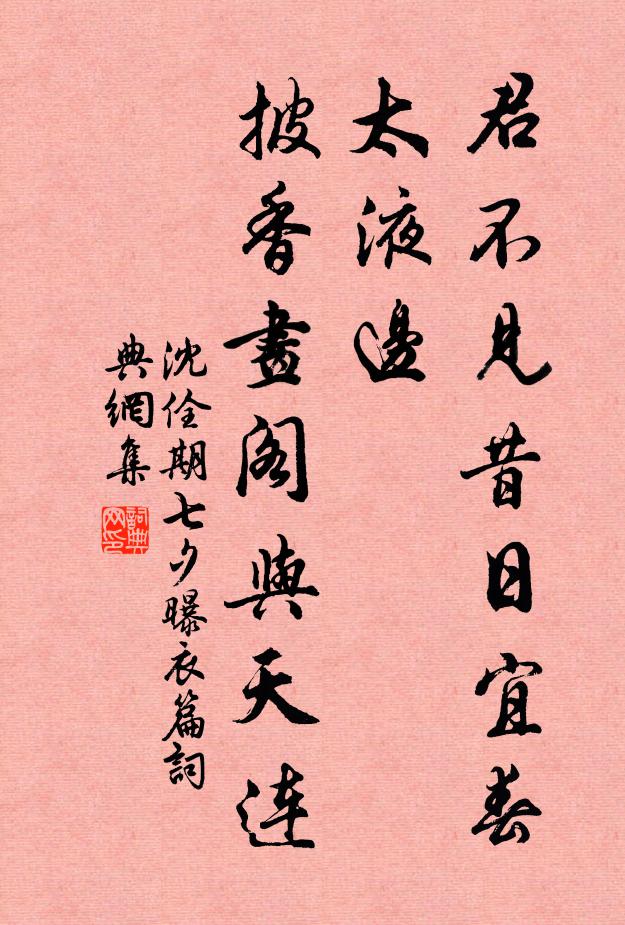 君不見昔日宜春
太液邊
披香畫閣與天連
沈佺期七夕曝衣篇詞
典網集
詞典
网印